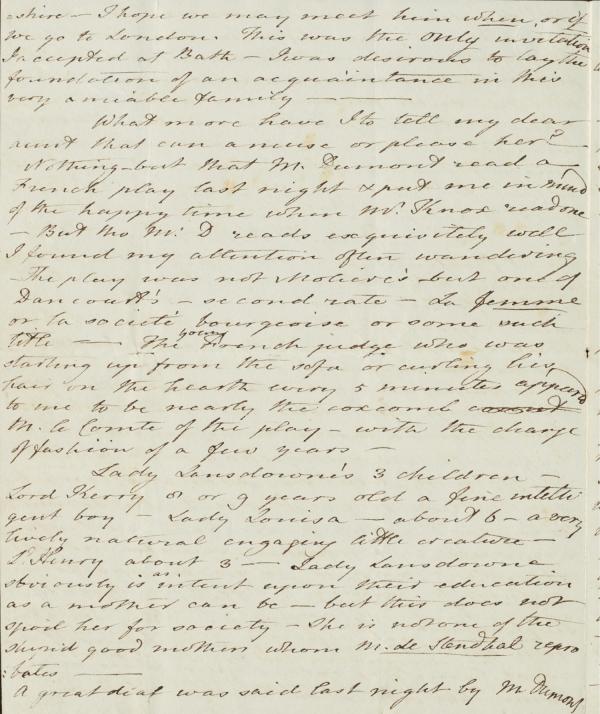 =shire - I hope we may meet him when, or if
we go to London. This was the only invitation
I accepted at Bath - I was desirous to lay the
foundation of an acquaintance in this
very amiable family ———
What more have I to tell my dear
aunt that can amuse or please her?
Nothing - but that M. Dumont read a
French play last night & put me in mind
of the happy time when Mr. Knox read one
- But tho M. D reads exquisitely well
I found my attention often wandering
- The play was not Moliere's but one of
Dancourt's - second rate - La femme
or la societé bourgeoise or some such
title — The young French judge who was
starting up from the sofa or curling his
hair on the hearth every 5 minutes appeard
to me to be nearly the coxcomb
M. le Comte of the play - with the change
of fashion of a few years -
Lady Lansdowne's 3 children -
Lord Kerry 8 or 9 years old a fine intelli
gent boy - Lady Louisa - about 6 - a very
lively natural engaging little creature -
Ld. Henry about 3 - Lady Lansdowne
obviously is as intent upon their education
as a mother can be - but this does not
spoil her for society - She is not one of the
stupid good mothers whom M. de Stendhal repro
:bates ———
A great deal was said last night by M Dumont